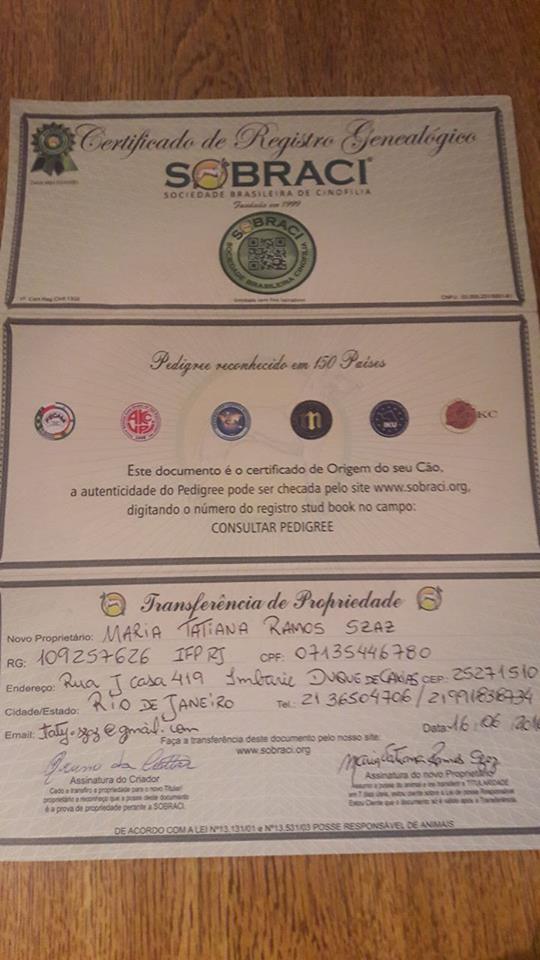 Certificado de Registro Genealógico
SOBRACI
SOCIEDADE BRASILEIRA DE CINOFILIA
Fundada em 1999
SOBRACI
SOCIEDADE BRASILEIRA CINOFILIA
Pedigree reconhecido em 150 Países
AKC
IKU
KC
Este documento é o certificado de Origem do seu Cão,
a autenticidade do Pedigree pode ser checada pelo site www.sobraci.org,
digitando o número do registro stud book no campo:
CONSULTAR PEDIGREE
Transferência de Propriedade
Novo Proprietário: MARIA TATIANA RAMOS SZAZ
RG: 109257626 IFP RJ CPF: 07135446780
Endereço: Rua J casa 419 Imbarie DUQUE DE CAXIAS CEP: 25271510
Cidade/Estado: RIO DE JANEIRO Tel.: 21 36504706 / 21991838734
Email: taty.szaz@gmail.com Data: 16/06/
Faça a transferência deste documento pelo nosso site:
www.sobraci.org
Assinatura do Criador
Assinatura do novo Proprietário
proprietário e reconheço que a posse deste documento
é a prova de propriedade perante a SOBRACI.
DE ACORDO COM A LEI Nº13.131/01 e Nº13.531/03 POSSE RESPONSÁVEL DE ANIMAIS